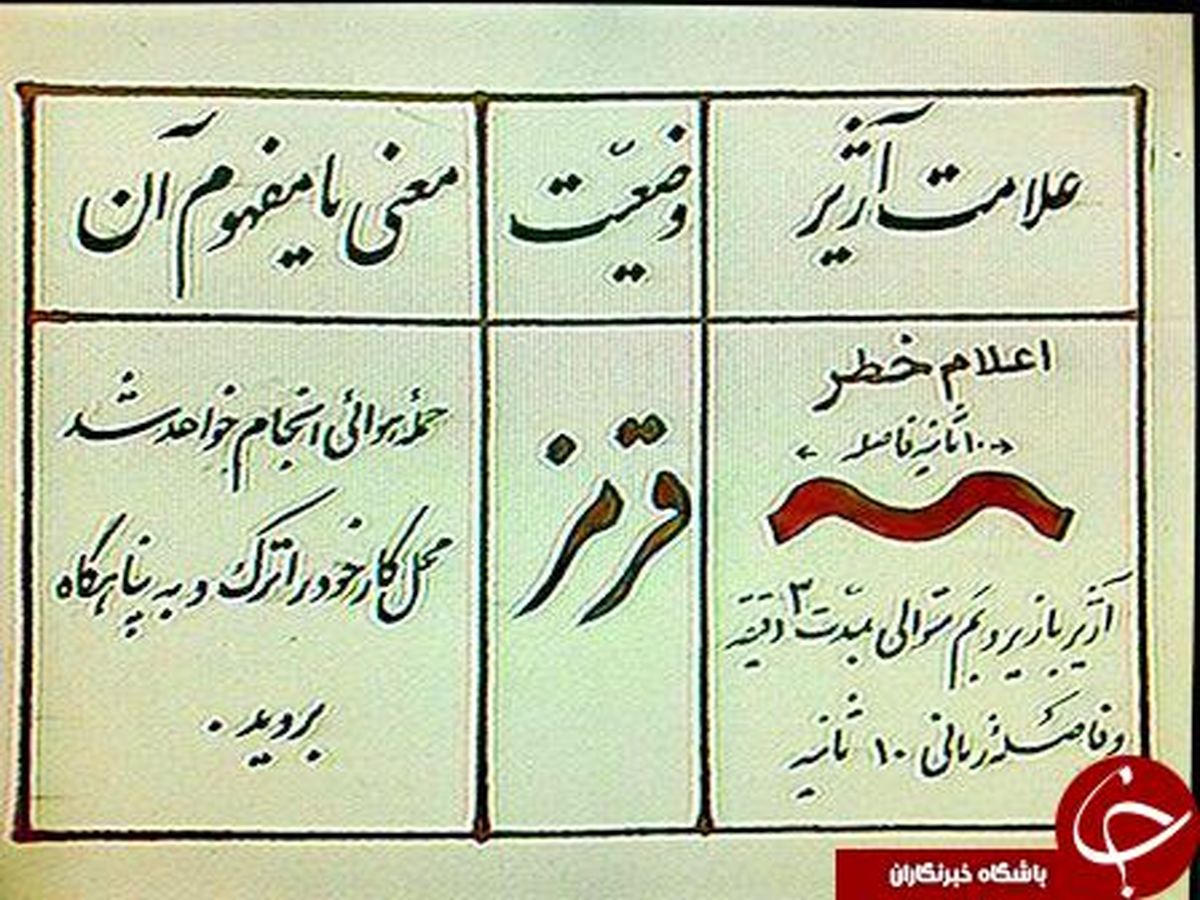 علامت آژیر
وضعیّت
معنی یا مفهوم آن
اعلام خطر
۱۰ ثانیه فاصله
آژیر با زیر و بم متوالی بمدّت ۳ دقیقه
و فاصلهٔ زمانی ۱۰ ثانیه
قرمز
حملهٔ هوائی انجام خواهد شد
محل کار خود را ترک و به پناهگاه
بروید.
باشگاه خبرنگاران